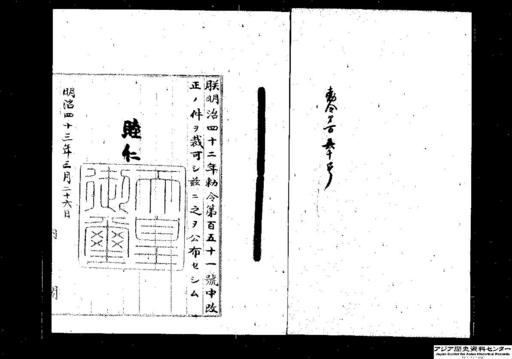 勅令第百五十号
朕明治四十二年勅令第百五十一號中改
正ノ件ヲ裁可シ茲ニ之ヲ公布セシム
睦仁
天皇
御璽
明治四十三年三月二十六日
内閣
アジア歴史資料センター
Japan Center for Asian Historical Records